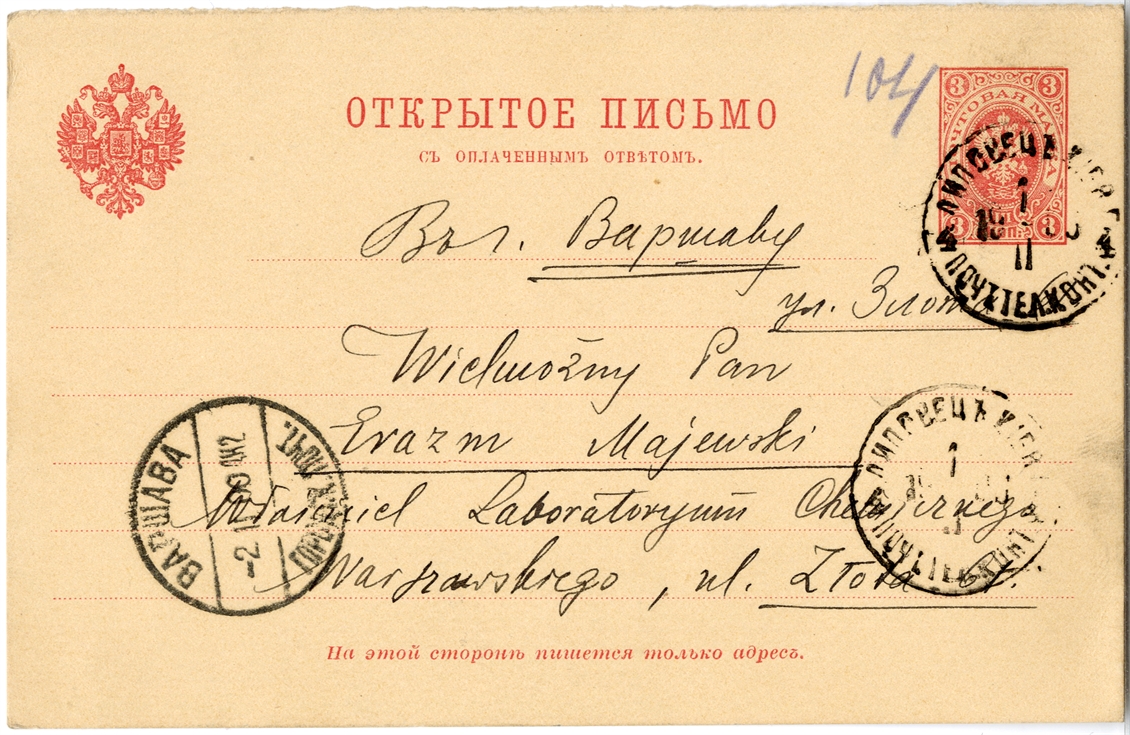 104
ОТКРЫТОЕ ПИСЬМО
СЪ ОПЛАЧЕННЫМЪ ОТВѢТОМЪ.
3 3
ПОЧТОВАЯ МАРКА
3 3
ЛИПОВЕЦЪ КІЕВ. Г.
1
11
ПОЧ. ТЕЛ. КОНТ.
Въ г. Варшаву
ул. Злота
Wielmożny Pan
Erazm Majewski
Właściciel Laboratoryum Chemicznego
Warszawskiego, ul. Złota
ВАРШАВА
-2 11
ГОРОД. ПОЧТ.
ЛИПОВЕЦЪ КІЕВ
1
ПОЧТ ТЕЛ КОНТ
На этой сторонѣ пишется только адресъ.